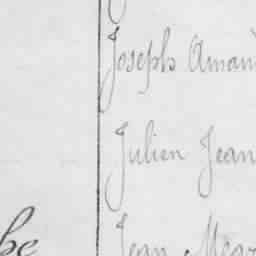 Joseph Aman
Julien Jean
Jean